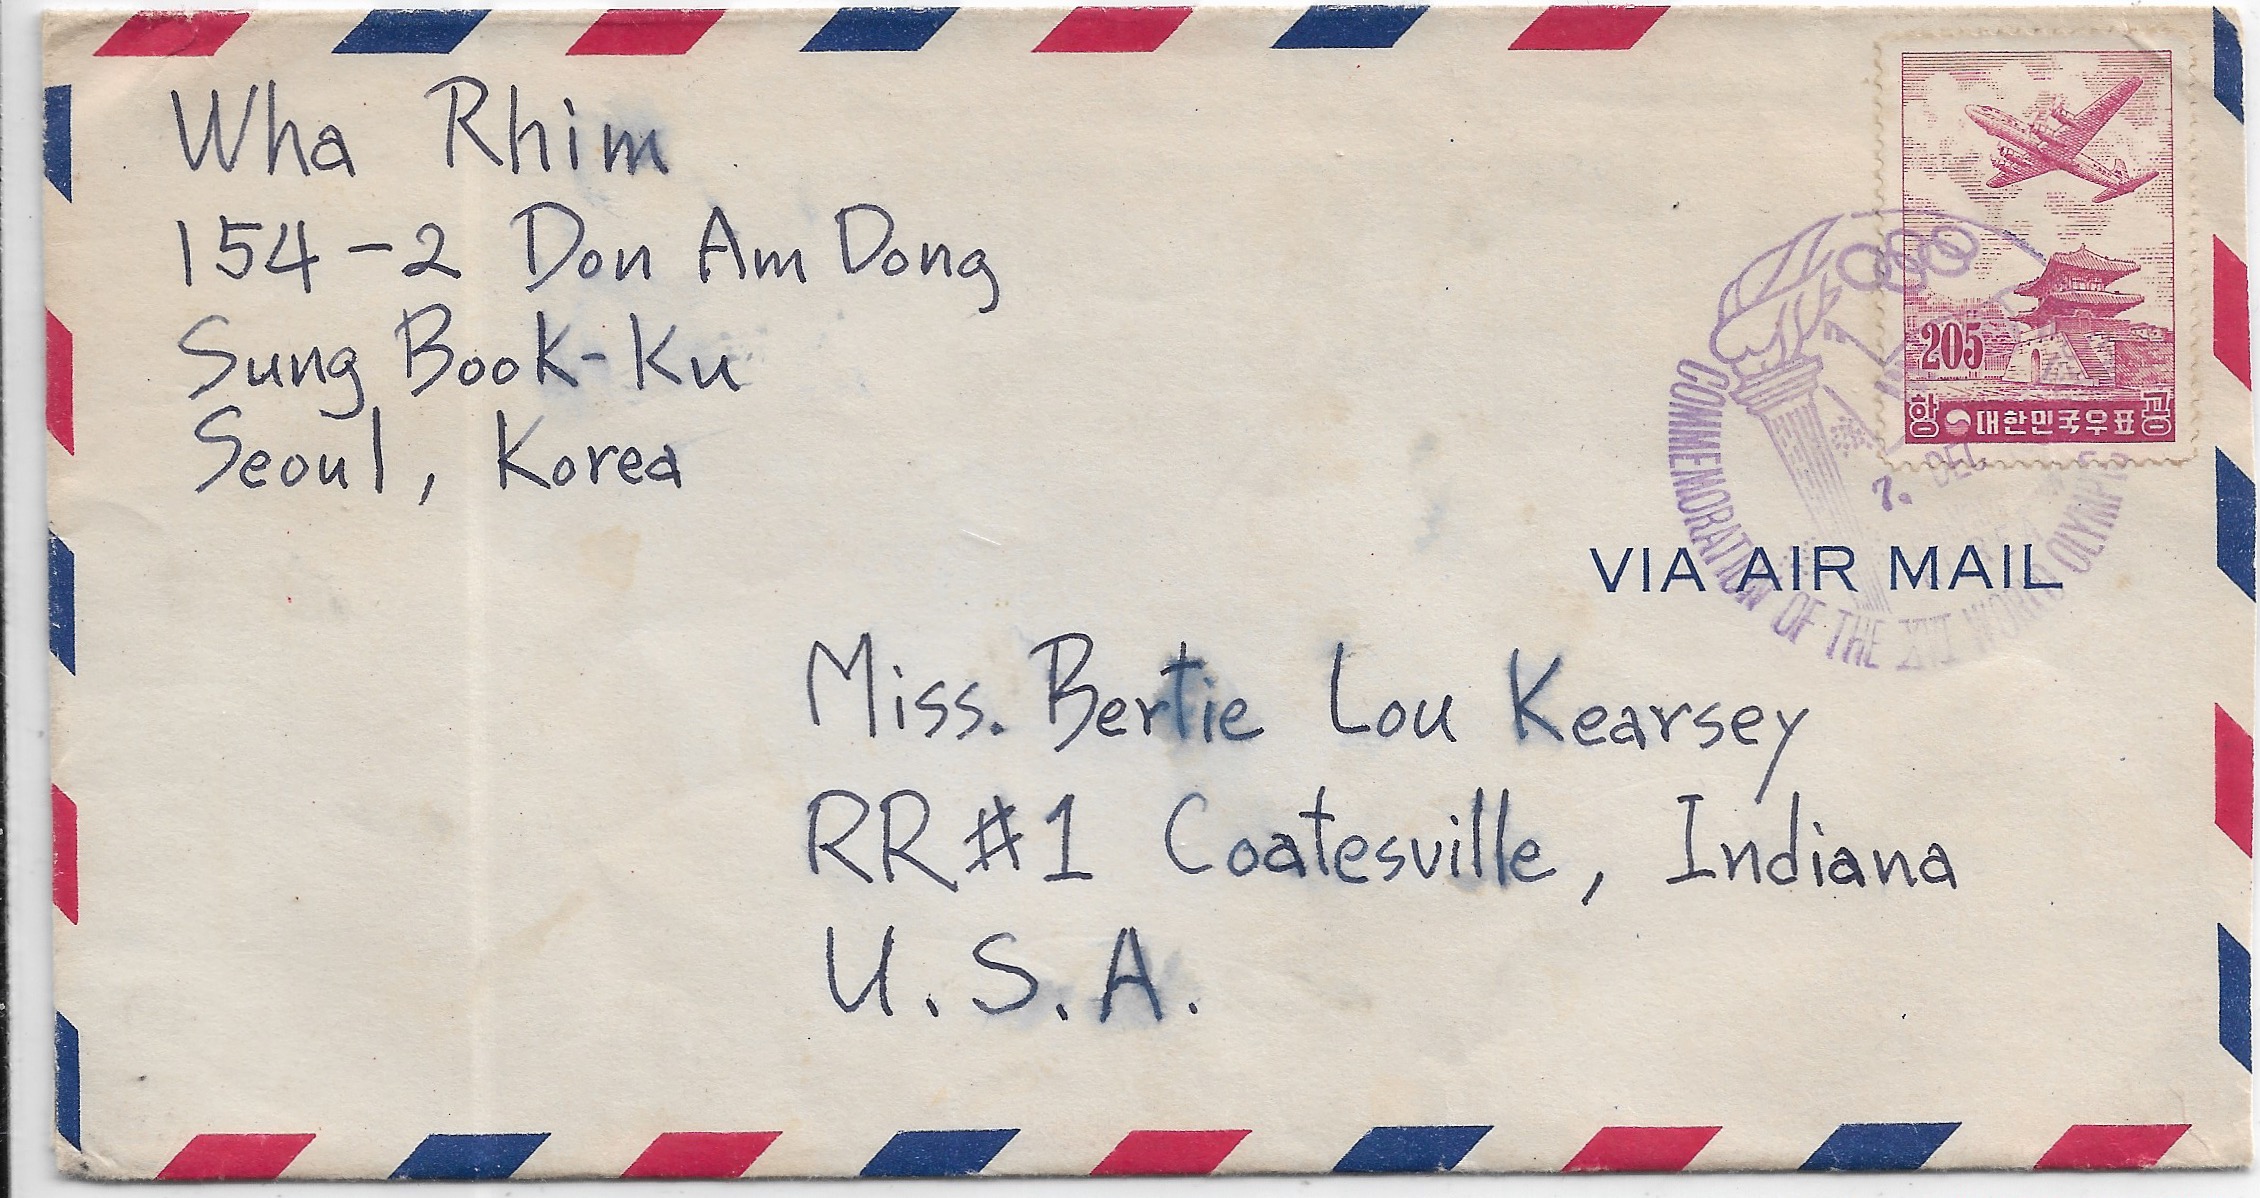 Wha Rhim
154-2 Don Am Dong
Sung Book-Ku
Seoul, Korea
205
항 대한민국우표 공
7. DEC
COMMEMORATION OF THE XVI WORLD OLYMPIC
VIA AIR MAIL
Miss. Bertie Lou Kearsey
RR #1 Coatesville, Indiana
U.S.A.